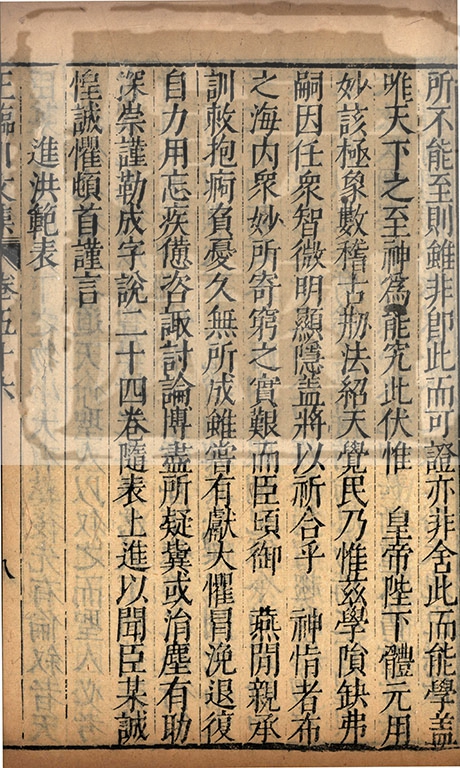 所不能至則雖非即此而可證亦非舍此而能學蓋
唯天下之至神爲能究此伏惟 皇帝陛下體元用
妙該極象數稽古刱法紹天覺民乃惟茲學隕缺弗
嗣因任衆智微明顯隱蓋將以祈合乎 神恉者布
之海内衆妙所寄窮之實艱而臣頃御 燕閒親承
訓敕抱痾負憂久無所成雖嘗有獻大懼冒浼退復
自力用忘疾憊咨諏討論博盡所疑冀或涓塵有助
深崇謹勒成字說二十四卷隨表上進以聞臣某誠
惶誠懼頓首謹言
進洪範表
王臨川文集 卷五十六 八